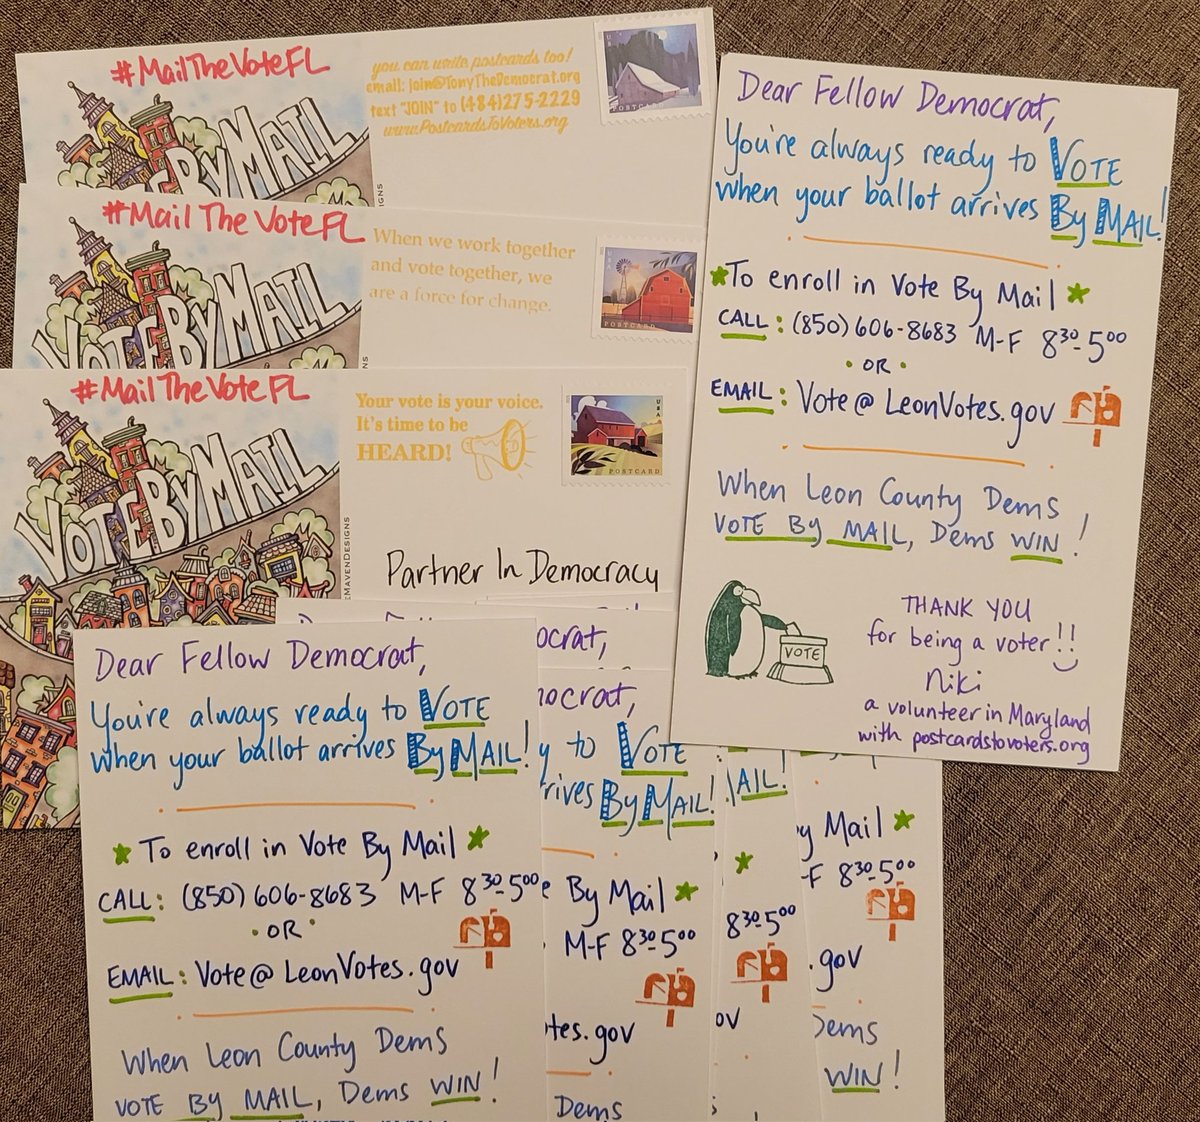 #MailTheVoteFL
VOTE BY MAIL
you can write postcards too!
email: join@TonyTheDemocrat.org
text "JOIN" to (484)275-2229
www.PostcardsToVoters.org
USA
POSTCARD
#Mail The VoteFL
VOTE BY MAIL
When we work together
and vote together, we
are a force for change.
POSTCARD
#MailTheVoteFL
VOTE BY MAIL
Your vote is your voice.
It's time to be
HEARD!
USA
POSTCARD
Partner In Democracy
Dear Fellow Democrat,
You're always ready to VOTE
when your ballot arrives By MAIL!
To enroll in Vote By Mail
CALL: (850) 606-8683 M-F 830-500
• OR •
EMAIL: Vote@LeonVotes.gov
When Leon County Dems
VOTE BY MAIL, Dems WIN!
VOTE
THANK YOU
for being a voter!!
Niki
a volunteer in Maryland
with postcardstovoters.org
Dear Fellow Democrat,
You're always ready to VOTE
when your ballot arrives By MAIL!
To enroll in Vote By Mail
CALL: (850) 606-8683 M-F 830-500
• OR •
EMAIL: Vote@LeonVotes.gov
When Leon County Dems
VOTE BY MAIL, Dems WIN!
ocrat,
nocrat,
y to VOTE
rives By MAIL!
e By Mail
M-F 830-500
tes.gov
Dems
AIL!
830-500
ov
y Mail
-F 830-500
.gov
Dems
WIN!